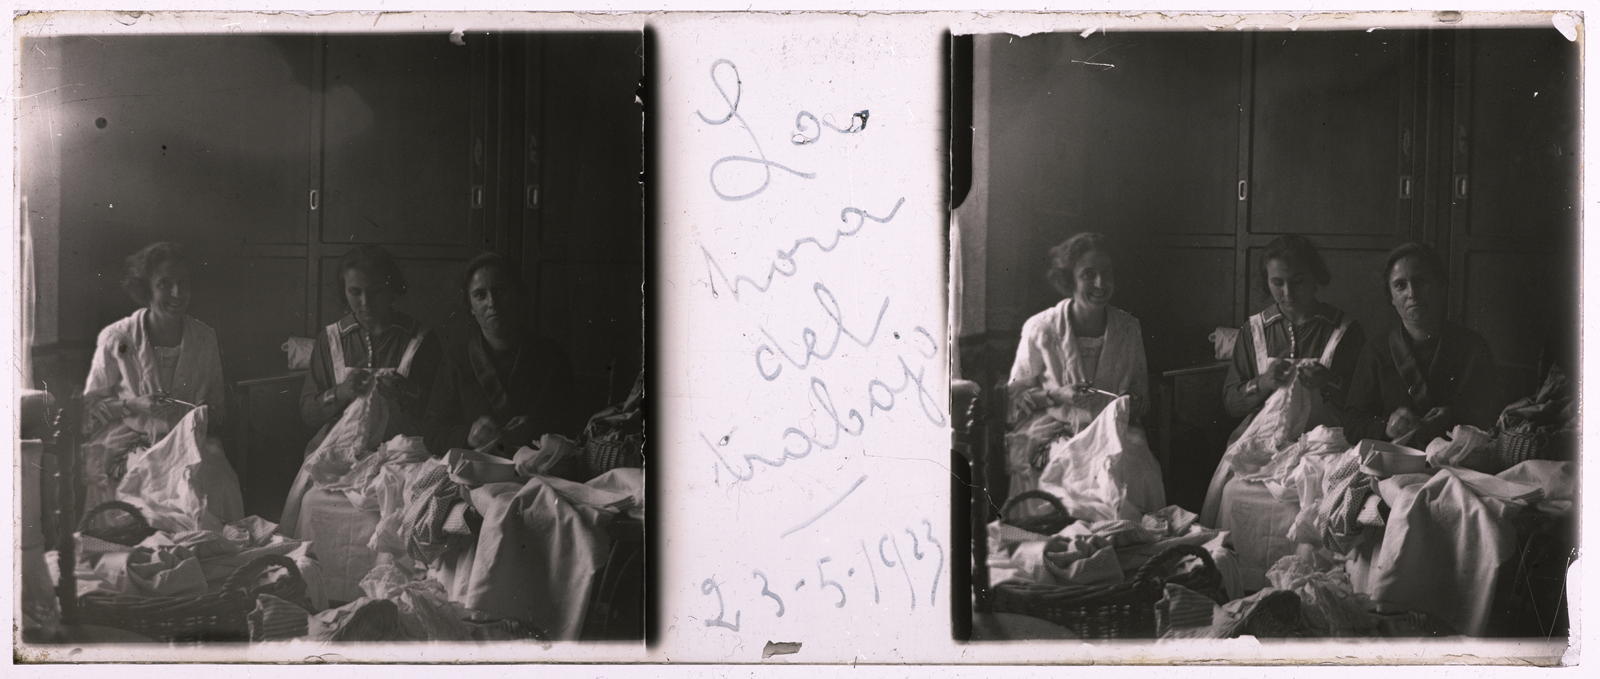 La
hora
del
trabajo
23-5-1923